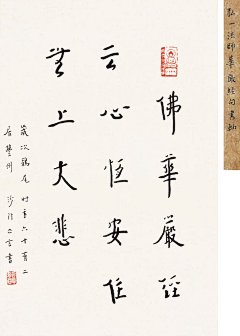 弘一法師華嚴經句書軸
佛華嚴經
云心恆安住
無上大悲
歲次鶉尾時年六十有二
居豐州
沙門一音書